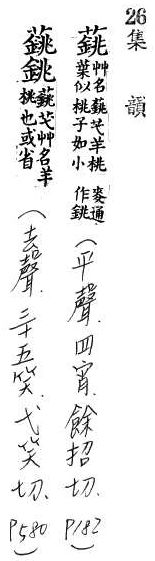 26 集韻
蘳 艸名蘳芅羊桃葉似桃子如小麥通作銚（平聲．四宵．餘招切．P182）
蘳銚 蘳芅艸名羊桃也或省（去聲．三十五笑．弋笑切．P580）